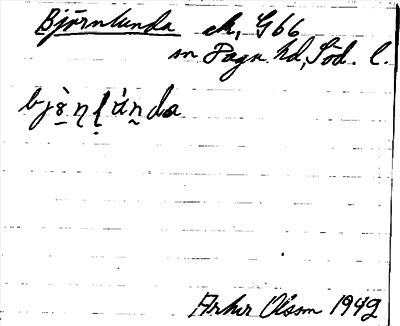 Björnlunda ek, G66
sn Daga hd, Söd. l.
bjò̤ṇḷúṇda
Artur Olsson 1942